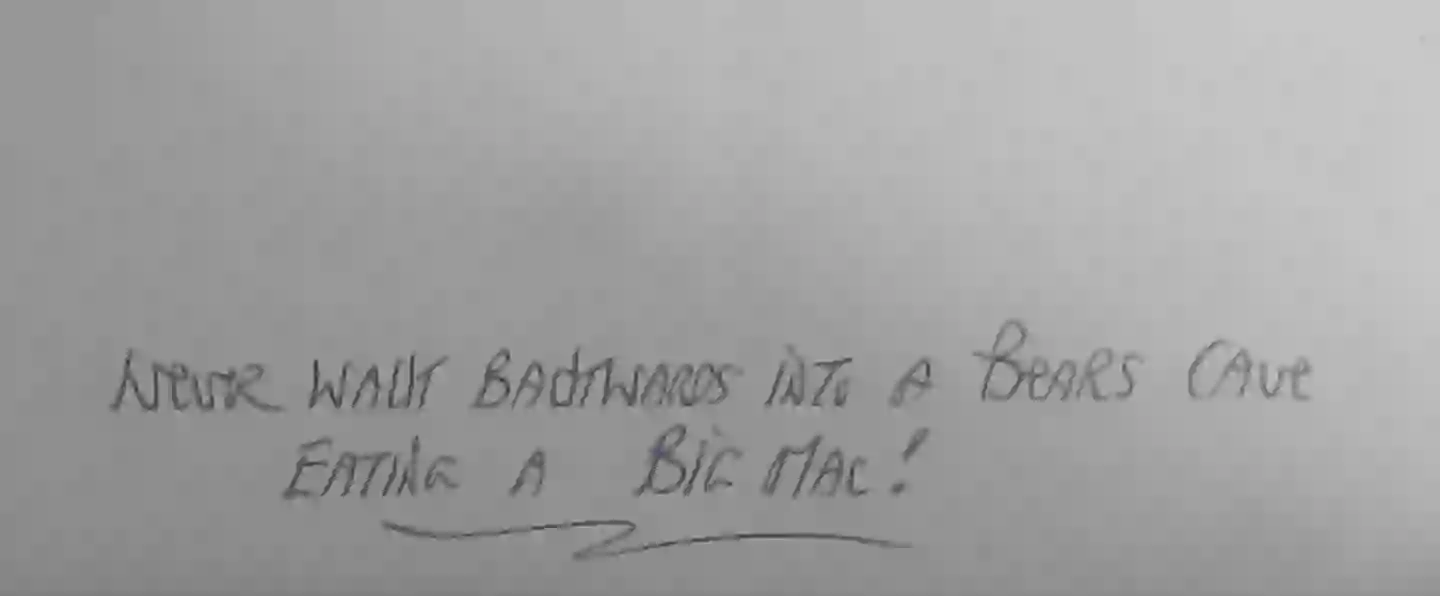 NeveR WALK BACKWARDS iNTo A BeARS CAve
EATiNG A BiG MAC!